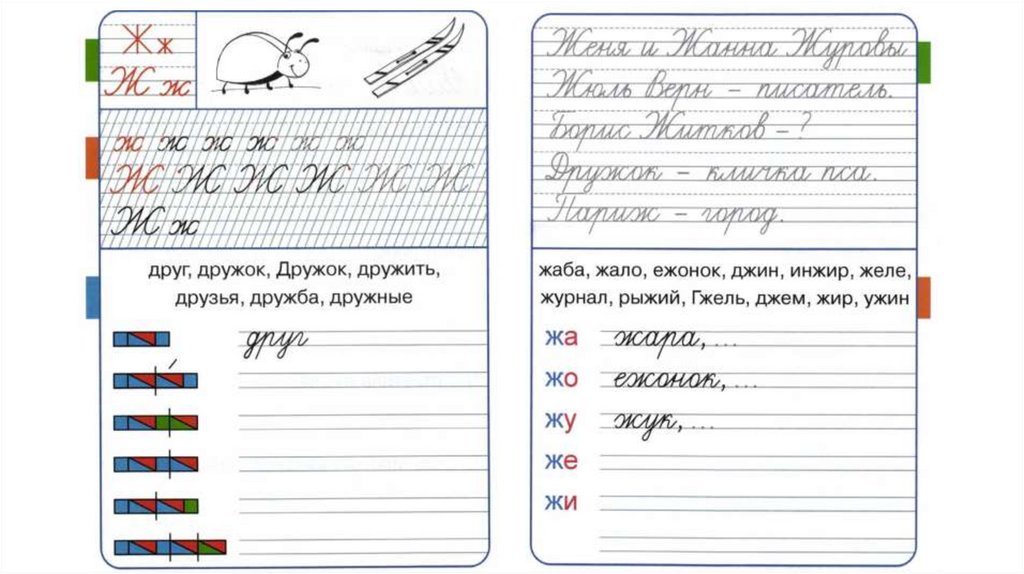 Ж ж
Ж ж
ж ж ж ж ж ж
Ж Ж Ж Ж Ж Ж
Ж ж
друг, дружок, Дружок, дружить,
друзья, дружба, дружные
друг
Женя и Жанна Журовы
Жюль Верн – писатель.
Борис Житков – ?
Дружок – кличка пса.
Париж – город.
жаба, жало, ежонок, джин, инжир, желе,
журнал, рыжий, Гжель, джем, жир, ужин
жа жара, ...
жо ежонок, ...
жу жук, ...
же
жи